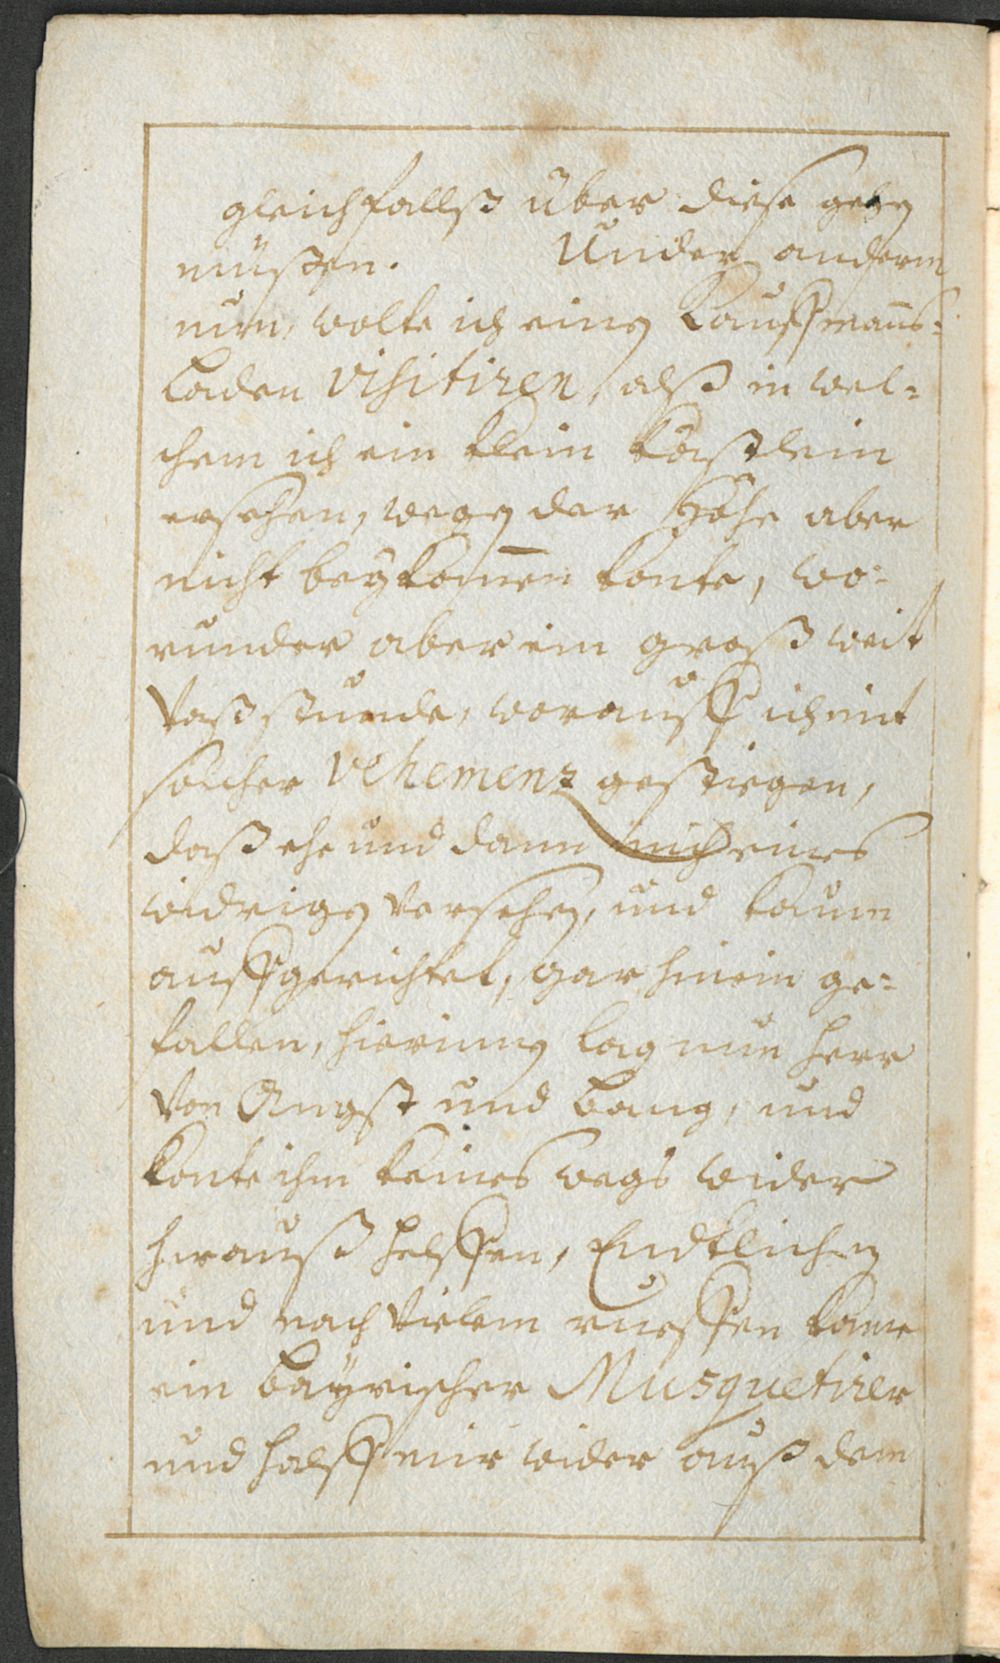 gleichfallß über diese gehen
müßen. Under anderm
nun, wolte ich einen Kauffmans-
laden visitiren, alß in wel-
chem ich ein klein Köstlein
ersehen, wegen der Höhe aber
nicht beykomen konte, wo-
runder aber ein groß weit
Vaß stunde, worauff ich mit
solcher Vehemenz gestiegen,
daß ehe und dann mich eines
widrigen versehen, und kaum
auffgerichtet, gar hinein ge-
fallen, hierinnen lag nun Herr
Von Angst und bang, und
konte ihm keines wegs wider
herauß helffen, Endtlichen
und nach vielem rueffen kame
ein bayrischer Musquetirer
und halff mir wider auß dem